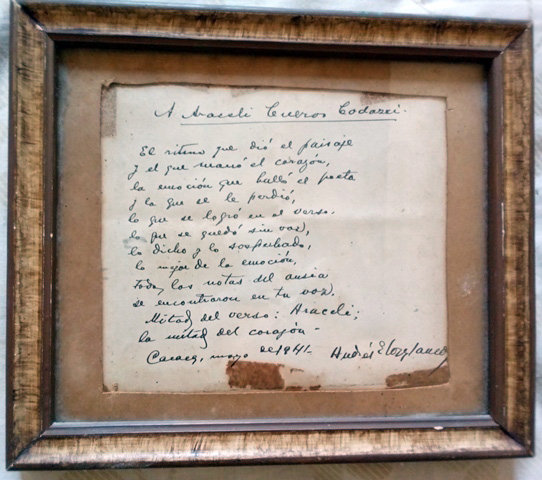 A Araceli Cueros Codazzi.
El ritmo que dió el paisaje
y el que manó el corazón,
la emoción que halló el poeta
y la que se le perdió,
lo que se logró en el verso.
lo que se quedó sin voz,
lo dicho y lo sospechado,
lo mejor de la emoción,
Todas las notas del ansia
se encontraron en tu voz.
Mitad del verso: Araceli;
la mitad del corazón-
Caracas, mayo de 1941- Andrés Eloy Blanco